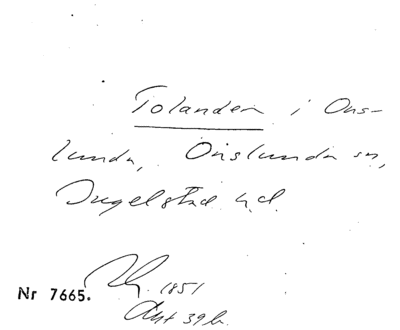 Tolanden i Ons-
lunda, Onslunda sn,
Ingelstad hd.
1851
Nr 7665.
Akt 39 b.